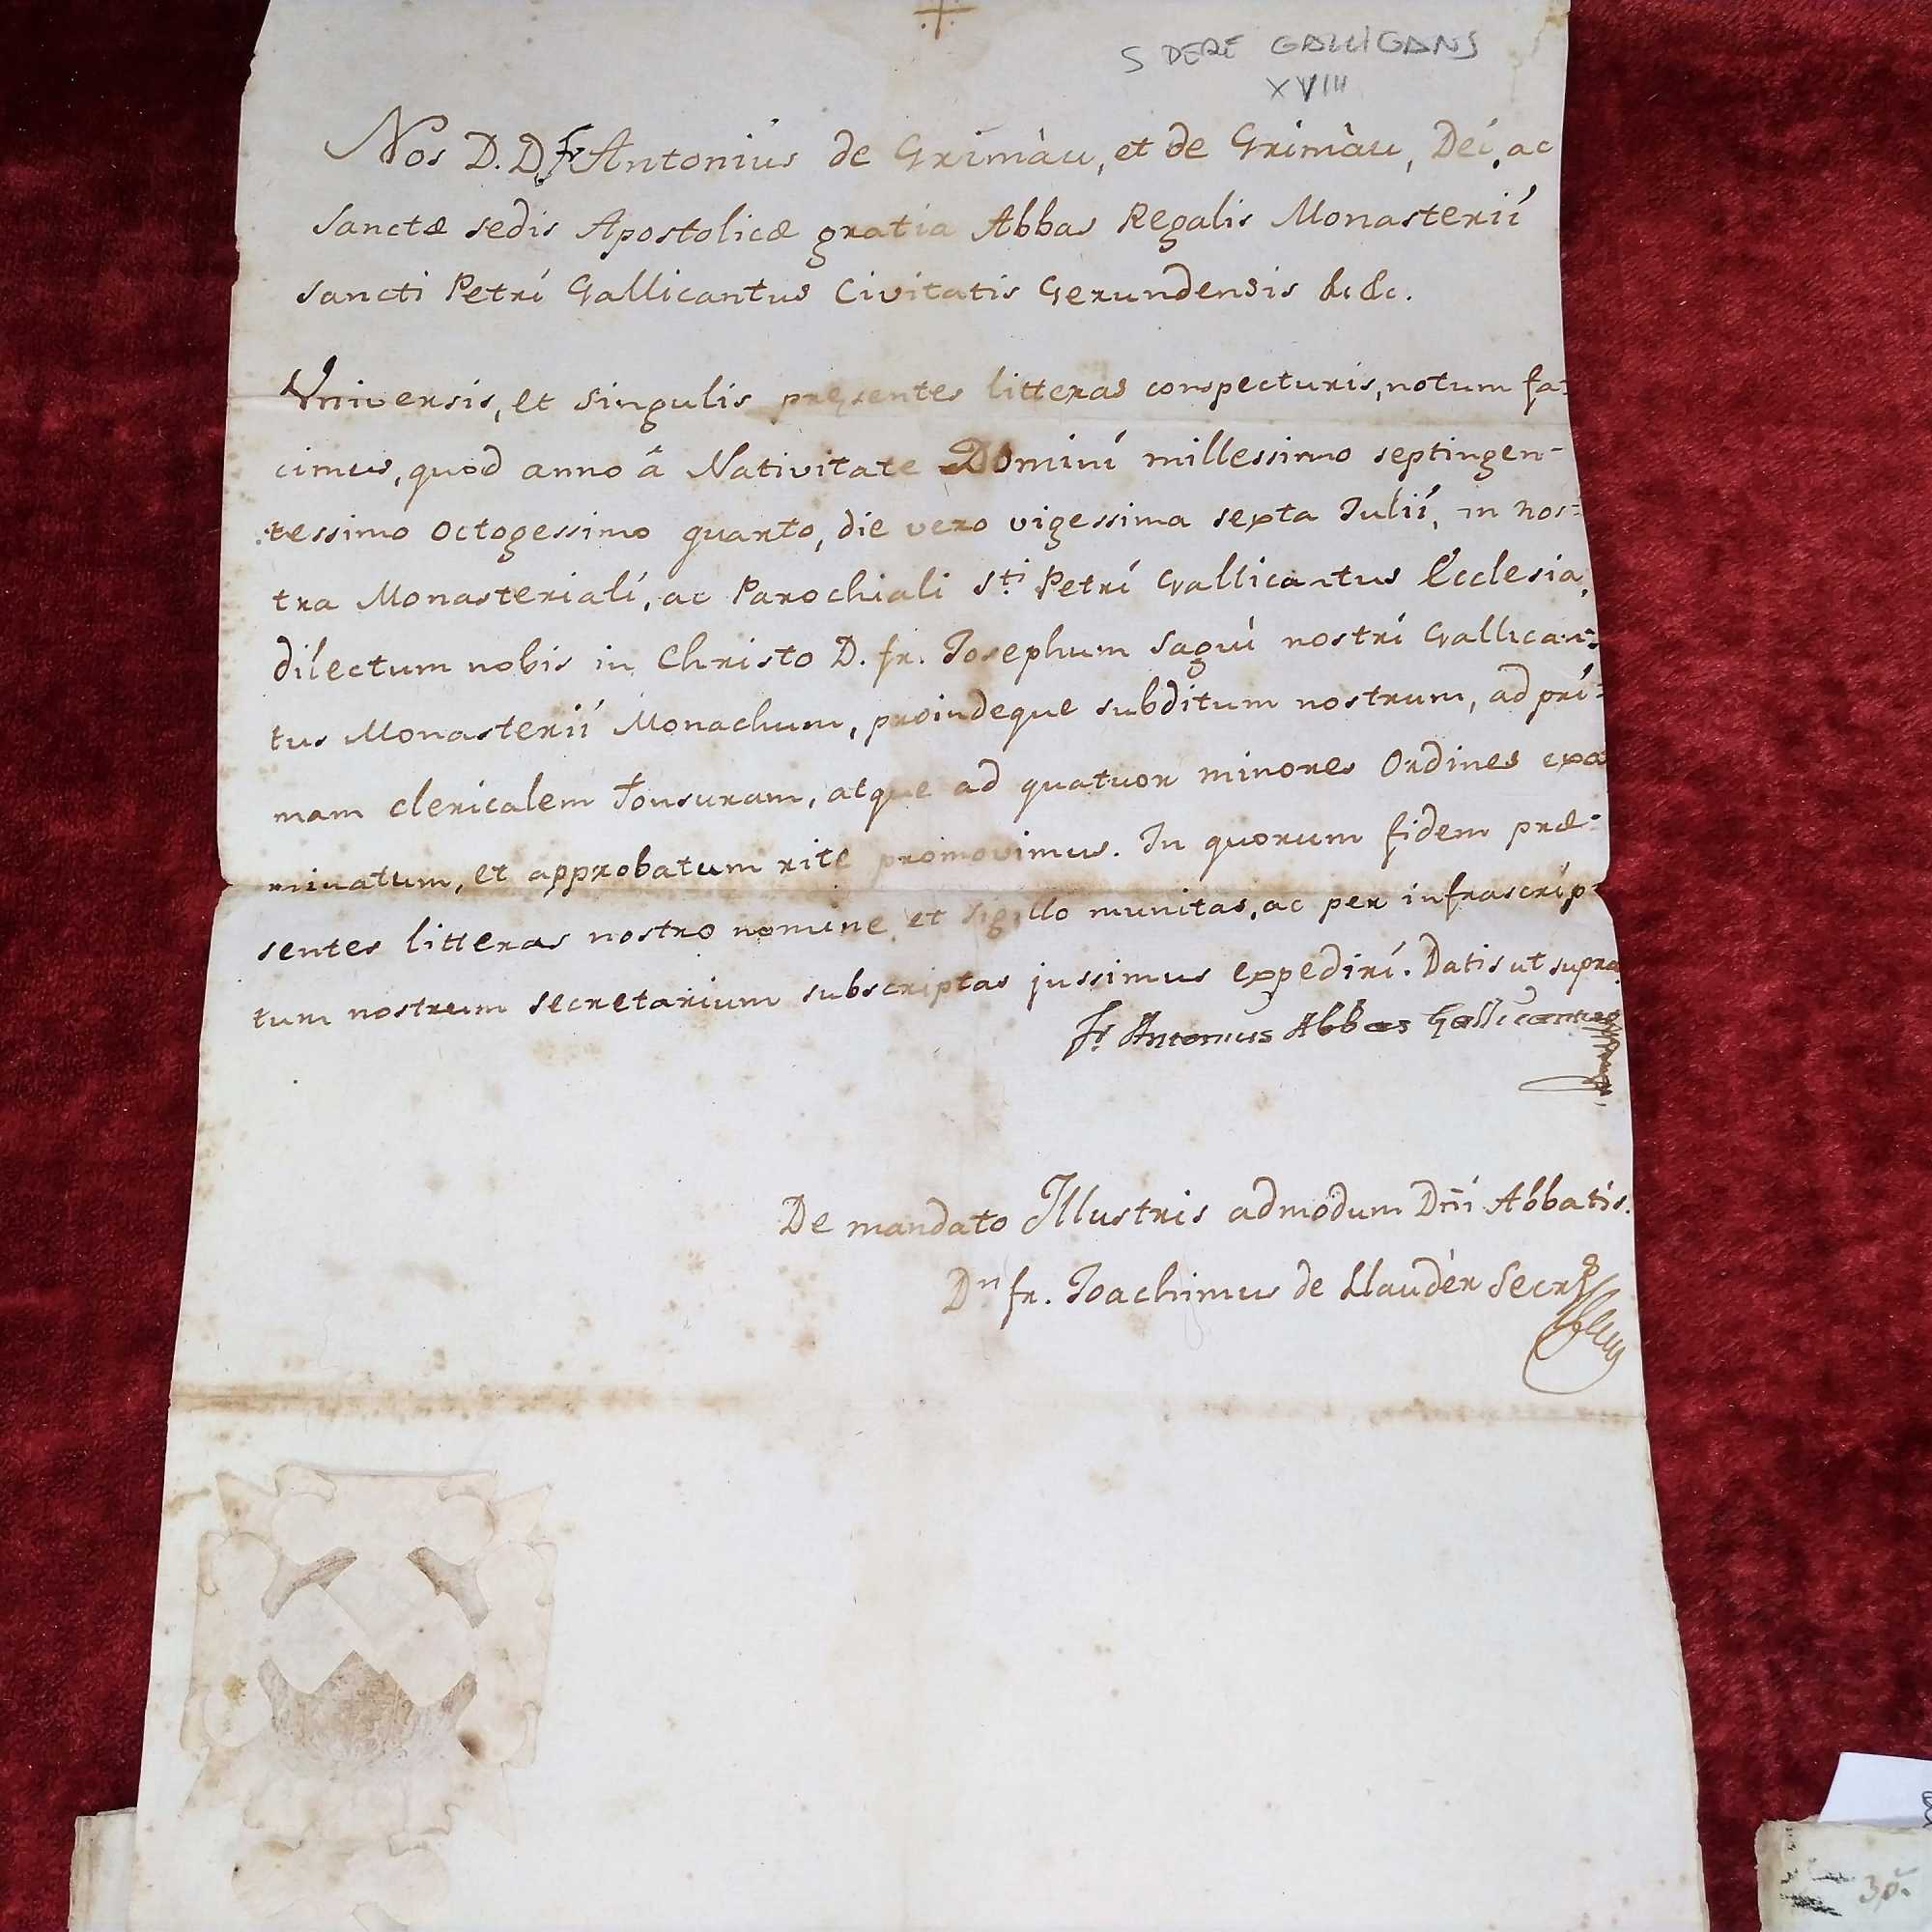 S PERE GALLIGANS
XVIII
Nos D. D. fr. Antonius de Grimàu, et de Grimàu, Dei, ac
Sanctæ sedis Apostolicæ gratia Abbas Regalis Monasterii
Sancti Petri Gallicantus Civitatis Gerundensis &c &c.
Universis, et singulis presentes litteras conspecturis, notum fa-
cimus, quod anno â Nativitate Domini millessimo septingen-
tessimo octogessimo quarto, die vero vigessima sexta Julii, in nos-
tra Monasteriali, ac Parochiali S.ti Petri Gallicantus Ecclesia,
dilectum nobis in Christo D. fr. Josephum Saguì nostri Gallican-
tus Monasterii Monachum, proindeque subditum nostrum, ad pri-
mam clericalem tonsuram, atque ad quatuor minores Ordines exa
minatum, et approbatum rite promovimus. In quorum fidem præ-
sentes litteras nostro nomine, et sigillo munitas, ac per infrascrip-
tum nostrum secretarium subscriptas jussimus expediri. Datis ut supra
fr. Antonius Abbas Gallicantus
De mandato Illustris admodum Dñi Abbatis.
Dn fr. Joachimus de Llaudèr Secr
30.